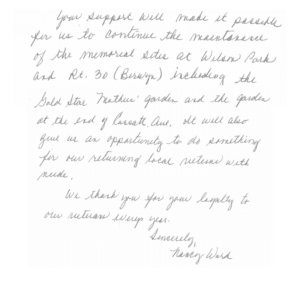 Your support will make it possible
for us to continue the maintenance
of the memorial sites at Wilson Park
and Rt. 30 (Berwyn) including the
Gold Star Mothers' Garden and the garden
at the end of Ave. It will also
give us an opportunity to do something
for our returning local veterans with
needs.
We thank you for your loyalty to
our veterans every year.
Sincerely,
Nancy Ward